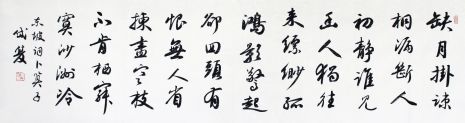 缺月掛疎
桐漏斷人
初靜誰見
幽人獨往
來縹緲孤
鴻影驚起
卻回頭有
恨無人省
揀盡寒枝
不肯栖寂
寞沙洲冷
東坡詞卜算子